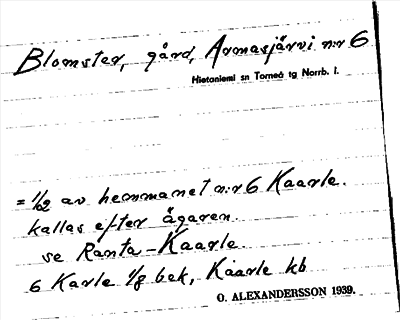 Blomster, gård, Armasjärvi n:r 6
Hietaniemi sn Torneå tg Norrb. l.
= 1/62 av hemmanet n:r 6 Kaarle.
kallas efter ägaren.
se Ranta-Kaarle.
6 Karle 1/8 bek, Kaarle kb
O. ALEXANDERSSON 1939.